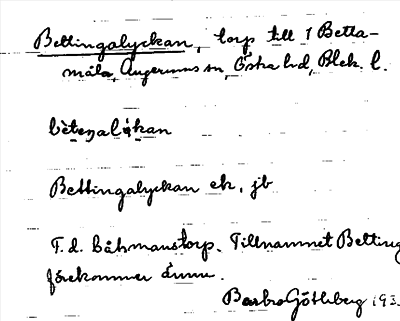 Bettingalyckan, torp till 1 Betta-
måla, Augerums sn, Östra hd, Blek. l.
Bettingalyckan ek, jb
F.d. båtsmanstorp. Tillnamnet Betting
förekommer ännu.
Barbro Göthberg 193